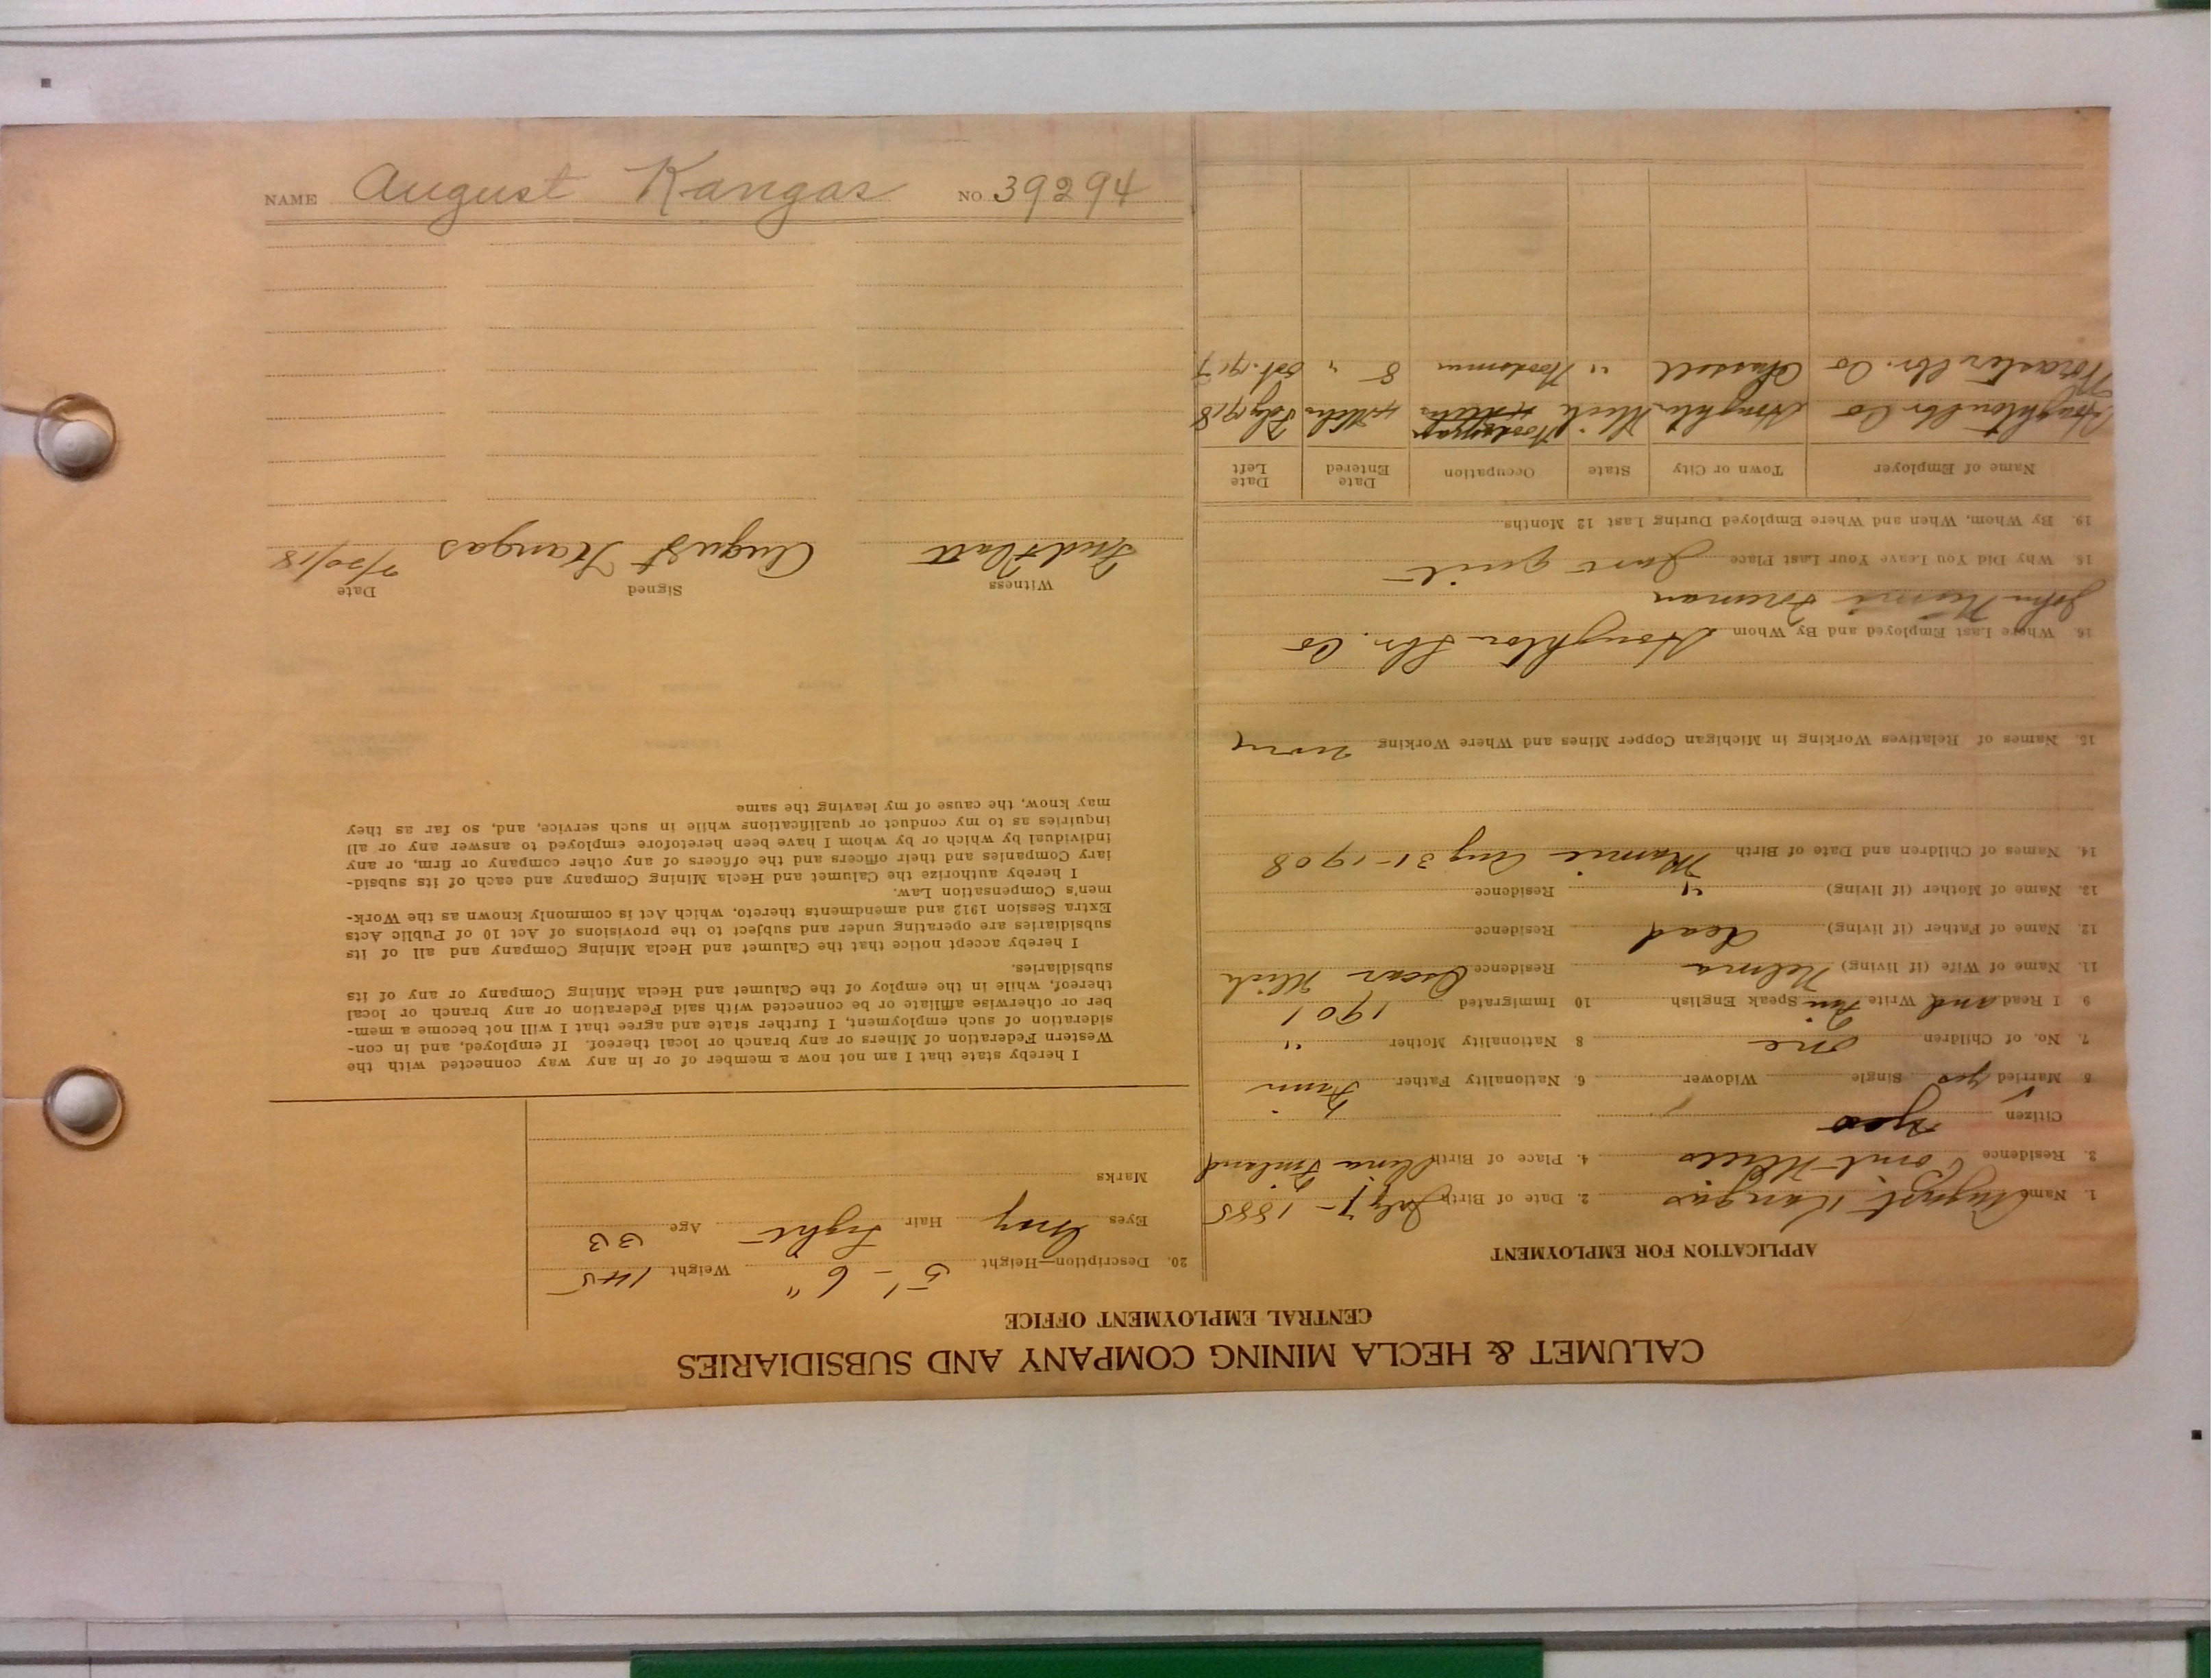 CALUMET & HECLA MINING COMPANY AND SUBSIDIARIES
CENTRAL EMPLOYMENT OFFICE
APPLICATION FOR EMPLOYMENT
1. Name August Kangas 2. Date of Birth July 7 - 1885
3. Residence 4. Place of Birth Finland
Citizen yes
5 Married yes Single Widower 6. Nationality Father Finn
7. No. of Children one 8 Nationality Mother "
9 I Read and Write Finn Speak English 10 Immigrated 1901
11. Name of Wife (if living) Residence Oscar Mich
12. Name of Father (if living) dead Residence
13. Name of Mother (if living) " Residence
14. Names of Children and Date of Birth Mamie Aug 31-1908
15. Names of Relatives Working in Michigan Copper Mines and Where Working none
16. Where Last Employed and By Whom Houghton Lbr. Co
John Foreman
18. Why Did You Leave Your Last Place Just quit
19. By Whom, When and Where Employed During Last 12 Months
Name of Employer Town or City State Occupation Date Entered Date Left
Houghton Lbr Co Mich Woodsman July 1918
Lbr. Co Chassell " Woodsman 8 " Oct. 1917
20. Description—Height 5' - 6" Weight 145
Eyes Gray Hair Light Age 33
Marks
I hereby state that I am not now a member of or in any way connected with the
Western Federation of Miners or any branch or local thereof. If employed, and in con-
sideration of such employment, I further state and agree that I will not become a mem-
ber or otherwise affiliate or be connected with said Federation or any branch or local
thereof, while in the employ of the Calumet and Hecla Mining Company or any of its
subsidiaries.
I hereby accept notice that the Calumet and Hecla Mining Company and all of its
subsidiaries are operating under and subject to the provisions of Act 10 of Public Acts
Extra Session 1912 and amendments thereto, which Act is commonly known as the Work-
men's Compensation Law.
I hereby authorize the Calumet and Hecla Mining Company and each of its subsid-
iary Companies and their officers and the officers of any other company or firm, or any
individual by which or by whom I have been heretofore employed to answer any or all
inquiries as to my conduct or qualifications while in such service, and, so far as they
may know, the cause of my leaving the same
Witness Signed Date
August Kangas 7/20/18
NAME August Kangas NO. 39294